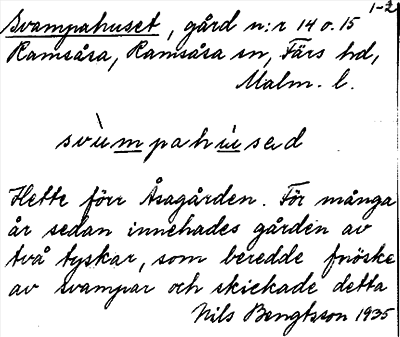 1-2
Svampahuset, gård n:r 14 o. 15
Ramsåsa, Ramsåsa sn, Färs hd,
Malm. l.
svùmpahúsed
Hette förr Åsagården. För många
år sedan innehades gården av
två tyskar, som beredde fnöske
av svampar och skickade detta
Nils Bengtsson 1935